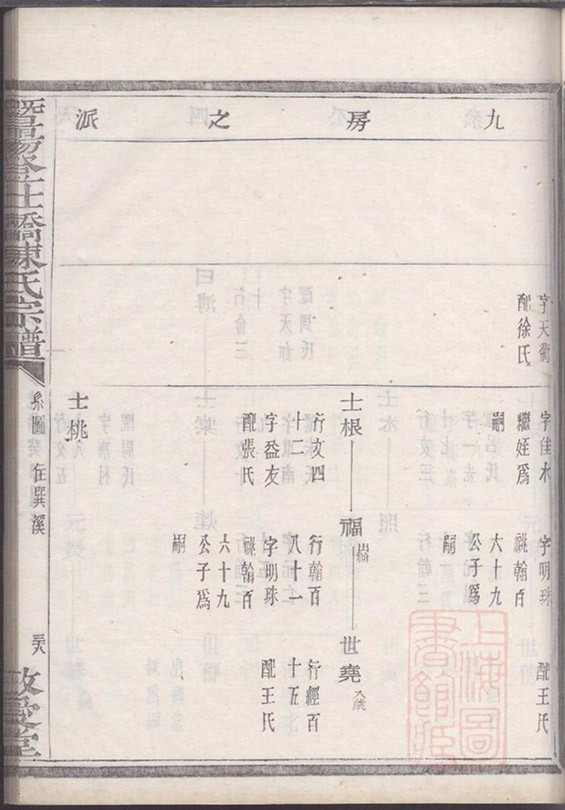 九房之派
字天衢
配徐氏
字佳木
繼姪爲
嗣
字明珠
祧翰百
六十九
公子爲
嗣
配王氏
士根
行文四
十二
字益友
配張氏
福
繼
行翰百
八十一
字明珠
祧翰百
六十九
公子爲
嗣
世堯
入祧
行經百
十五
配王氏
士桃
登土橋陳氏宗譜
系圖 在巽溪
敬愛堂
上海圖書館藏